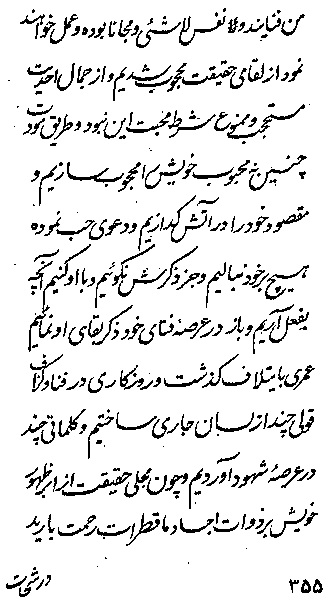 من فنایند ولا نفس لاشئی و مجانا بوده و عمل خواهند
نمود از لقای حقیقت محجوب شدیم و از جمال احدیت
محتجب و ممنوع شرط محبت این نبود و طریق مودت
چنین نه محبوب خویش محجوب سازیم و
مقصود خود را در آتش گدازیم و دعوی حب نموده
هیچ بر خود نبالیم و جز ذکرش نگوئیم و با او کنیم آنچه
بفعل آریم و باز در عرصهٔ فنای خود ذکر بقای او نمائیم
عمری باتلاف گذشت و روزگاری در فنا و گزاف
قولی چند از لسان جاری ساختیم و کلماتی چند
در عرصهٔ شهود آوردیم و چون مجلی حقیقت از ابر ظهور
خویش بر ذوات اجساد ما قطرات رحمت بارید
در شحات
۳۵۵